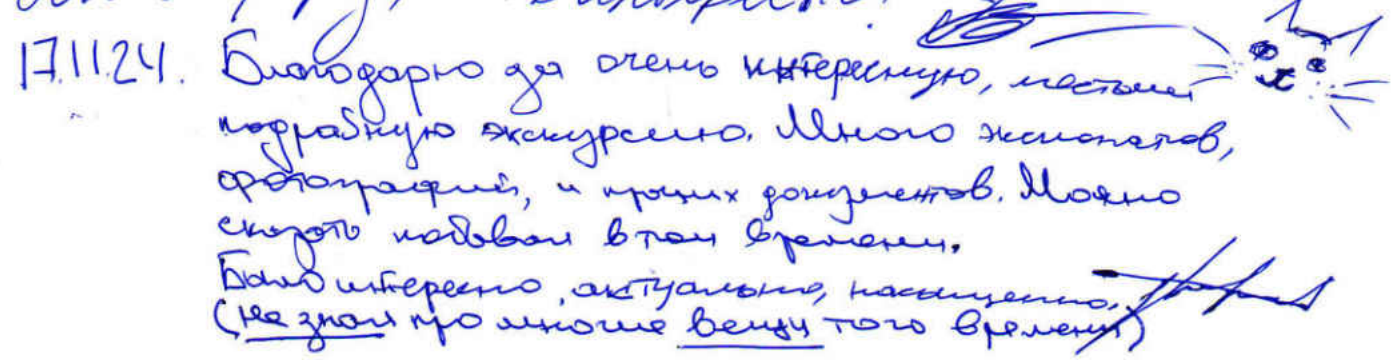 17.11.24. Благодарю за очень интересную, местами
подрабную экскурсию. Много экспонатов,
фотографий, и прочих документов. Можно
сказать побывал в том времени.
Было интересно, актуально, насыщенно.
(не знал про многие вещи того времени)